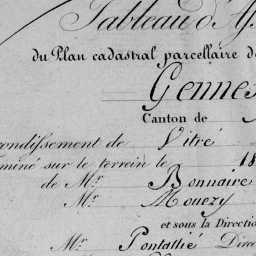 Tableau d'As
du Plan cadastral parcellaire de
Gennes
Canton de
ondissement de Vitré
miné sur le terrein le 18
de M.r Bonnaire
M.r Mouezy
et sous la Direction
M.r Pontallié Direc